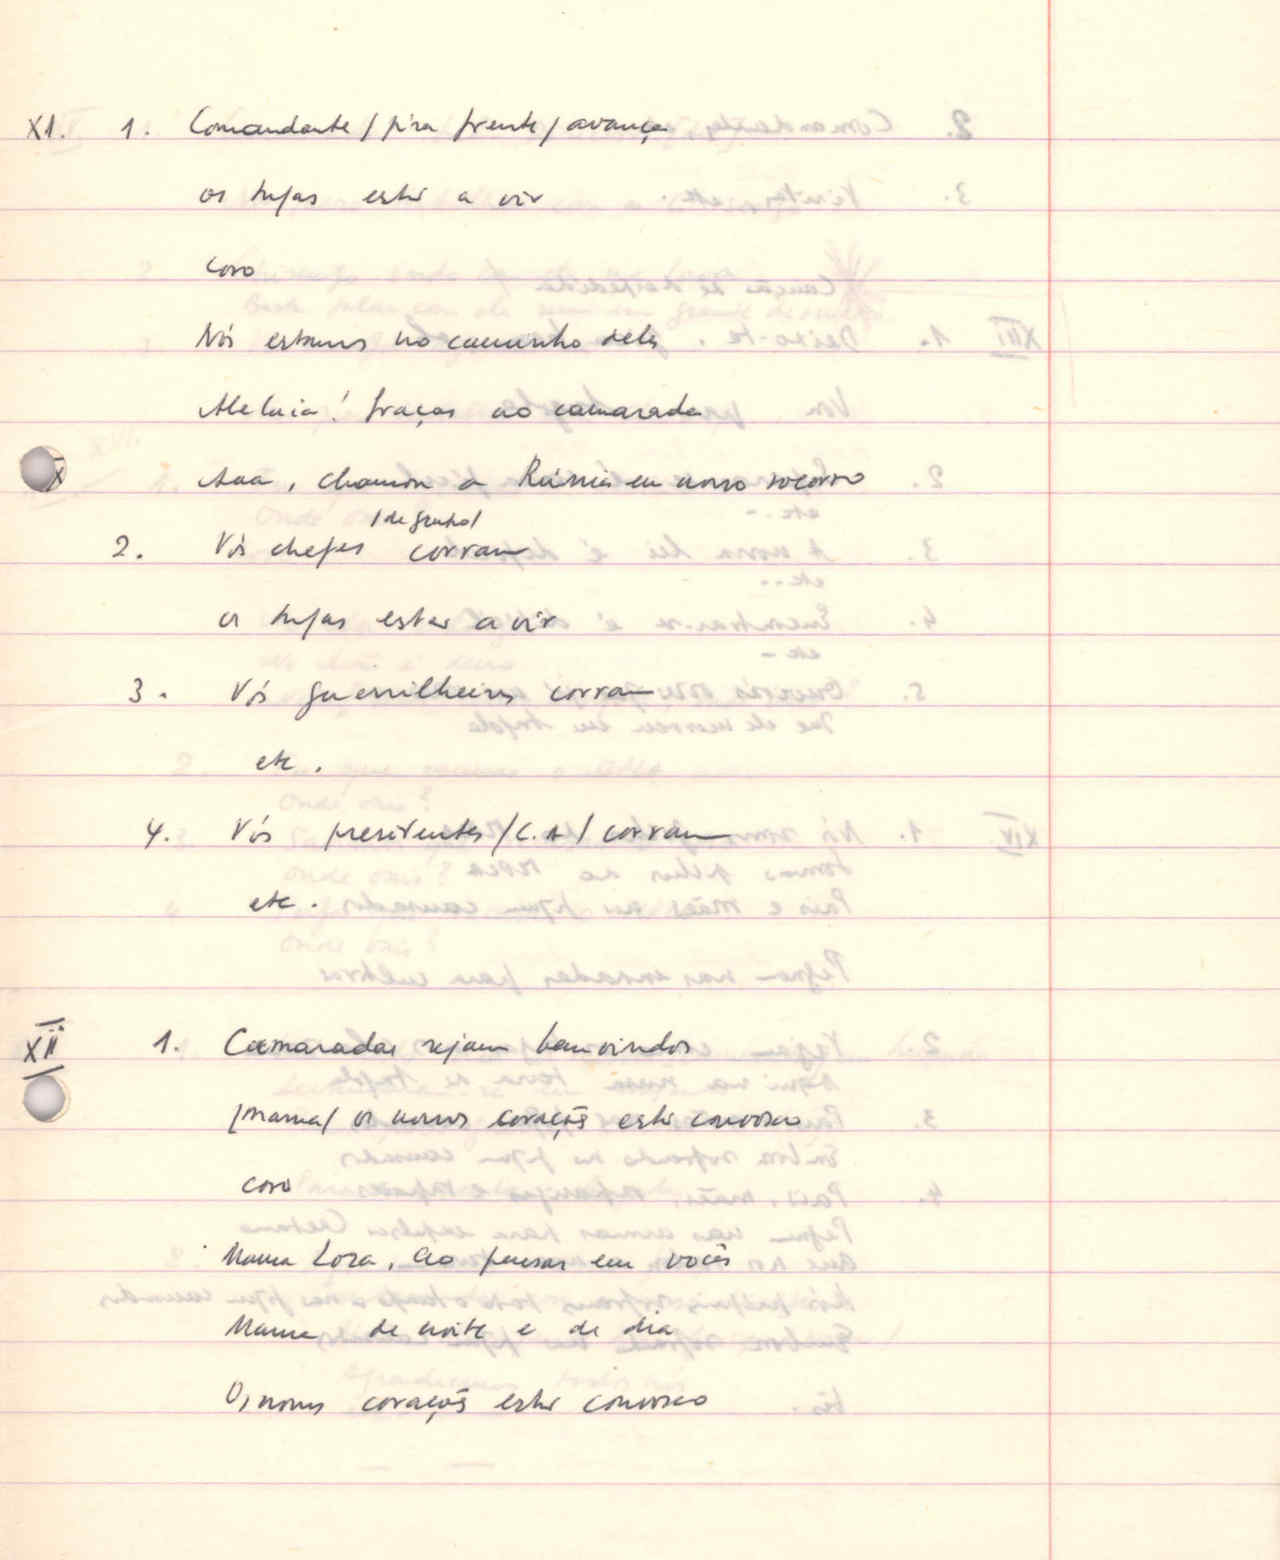 XI. 1. Comandante / pira frente / avança
os tugas estão a vir
coro
Nós estamos no caminho deles
Aleluia! graças ao camarada
X Aaa, chamou a Rússia em nosso socorro
/de grupo/
2. Vós chefes corram
os tugas estão a vir
3. Vós guerrilheiros corram
etc.
4. Vós presidentes /C.A/ corram
etc.
XII 1. Camaradas sejam bem vindos
/mama/ os nossos corações estão convosco
coro
Mama Loza, ao pensar em vocês
Mama de noite e de dia
Os nossos corações estão convosco